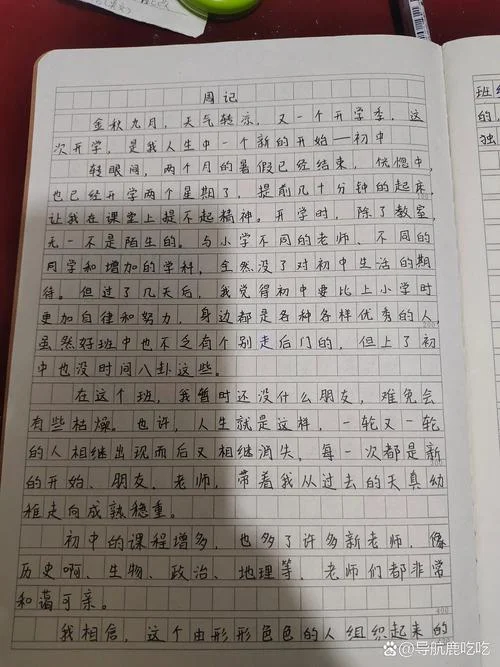 周记
金秋九月，天气转凉，又一个开学季，这
次开学，是我人生中一个新的开始—初中
转眼间，两个月的暑假已经结束，恍惚中，
也已经开学两个星期了，提前几十分钟的起床，
让我在课堂上提不起精神。开学时，除了教室，
无一不是陌生的。与小学不同的老师、不同的
同学和增加的学科，全然没了对初中生活的期
待。但过了几天后，我觉得初中要比上小学时
更加自律和努力，身边都是各种各样优秀的人，
虽然好班中也不乏有个别走后门的，但上了初
中也没时间八卦这些。
在这个班，我暂时还没什么朋友，难免会
有些枯燥。也许，人生就是这样，一轮又一轮
的人相继出现而后又相继消失，每一次都是新
的开始、朋友、老师，带着我从过去的天真幼
稚走向成熟稳重。
初中的课程增多，也多了许多新老师，像
历史啊、生物、政治、地理等，老师们都非常
和蔼可亲。
400
我相信，这个由形形色色的人组织起来的
班级
的，
独
@导航鹿吃吃